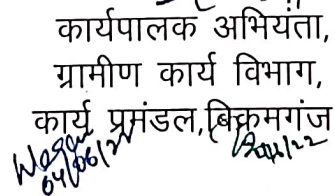 कार्यपालक अभियंता,
ग्रामीण कार्य विभाग,
कार्य प्रमंडल,बिक्रमगंज
04/06/22